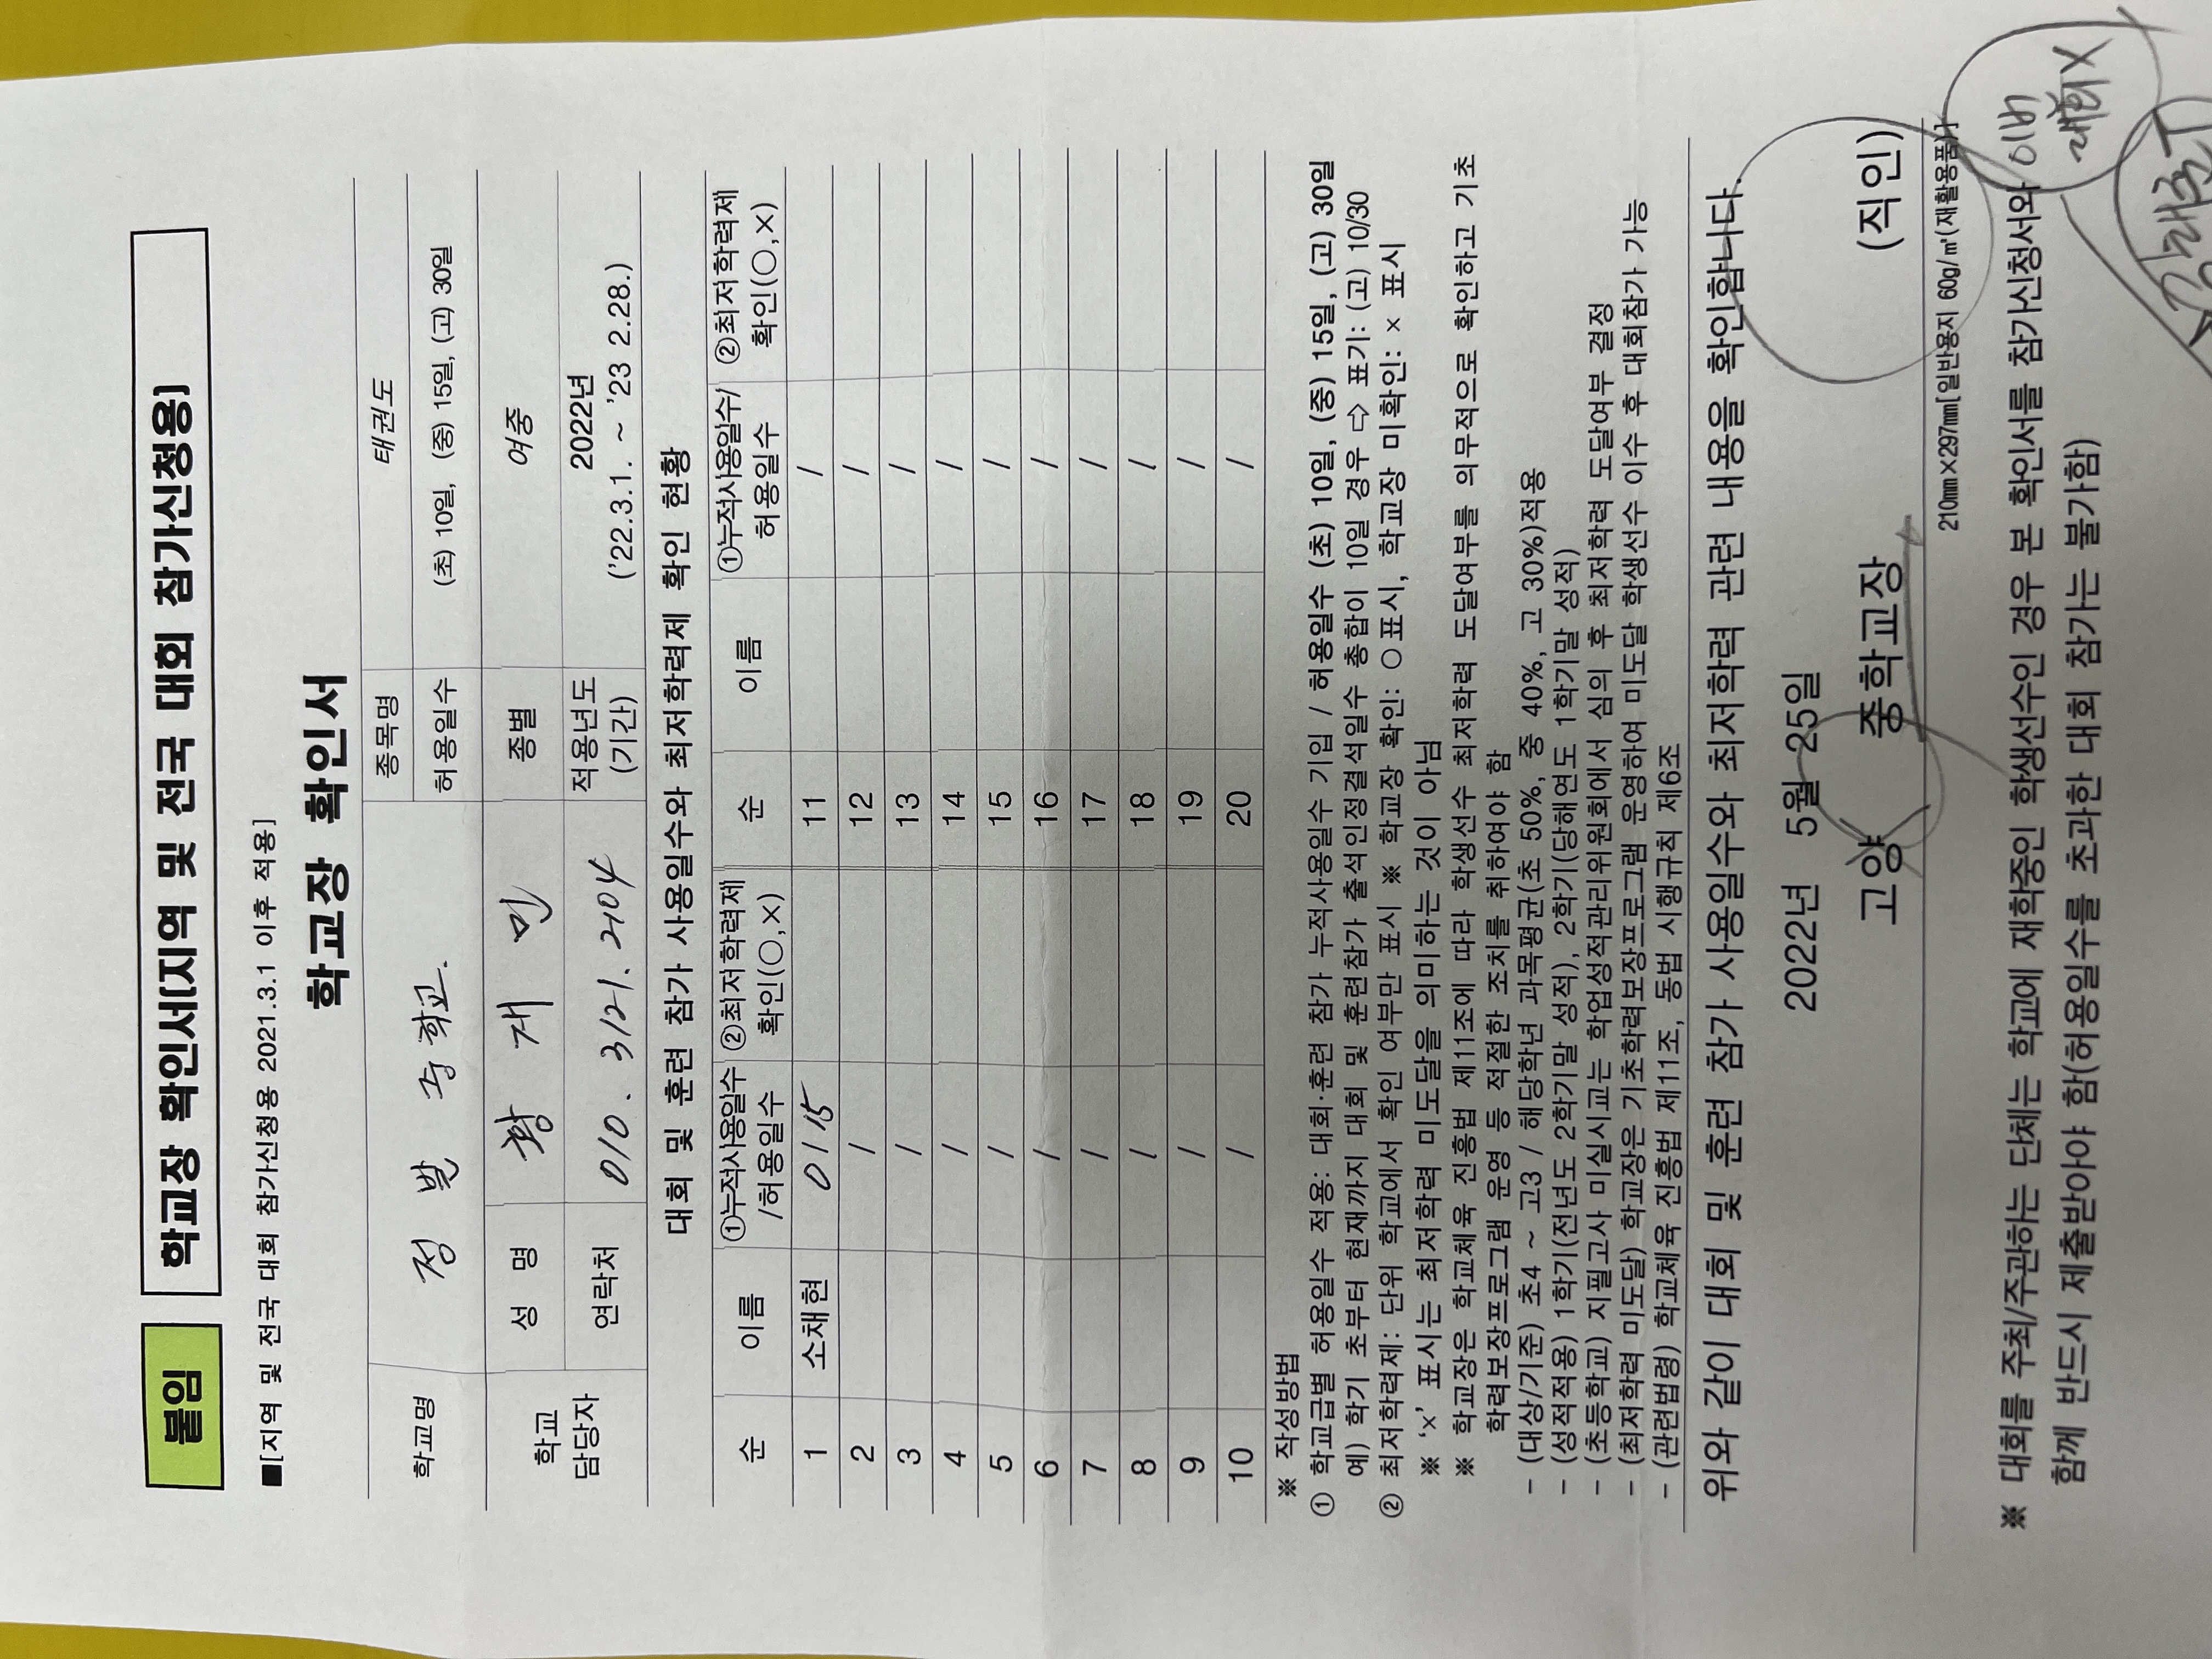 붙임
학교장 확인서[지역 및 전국 대회 참가신청용]
■[지역 및 전국 대회 참가신청용 2021.3.1 이후 적용]
학교장 확인서
학교명 정발중학교. 종목명 태권도
허용일수 (초) 10일, (중) 15일, (고) 30일
학교 담당자 성 명 황재민 종별 여중
연락처 010. 3121. 2104 적용년도 (기간) 2022년 ('22.3.1. ~ '23 2.28.)
대회 및 훈련 참가 사용일수와 최저학력제 확인 현황
순 이름 ①누적사용일수/허용일수 ②최저학력제 확인(○,×) 순 이름 ①누적사용일수/허용일수 ②최저학력제 확인(○,×)
1 소채현 0/15 11 /
2 / 12 /
3 / 13 /
4 / 14 /
5 / 15 /
6 / 16 /
7 / 17 /
8 / 18 /
9 / 19 /
10 / 20 /
※ 작성방법
① 학교급별 허용일수 적용: 대회·훈련 참가 누적사용일수 기입 / 허용일수 (초) 10일, (중) 15일, (고) 30일
예) 학기 초부터 현재까지 대회 및 훈련참가 출석인정결석일수 총합이 10일 경우 ⇨ 표기: (고) 10/30
② 최저학력제: 단위 학교에서 확인 여부만 표시 ※ 학교장 확인: ○표시, 학교장 미확인: × 표시
※ '×' 표시는 최저학력 미도달을 의미하는 것이 아님
※ 학교장은 학교체육 진흥법 제11조에 따라 학생선수 최저학력 도달여부를 의무적으로 확인하고 기초
학력보장프로그램 운영 등 적절한 조치를 취하여야 함
- (대상/기준) 초4 ~ 고3 / 해당학년 과목평균(초 50%, 중 40%, 고 30%)적용
- (성적적용) 1학기(전년도 2학기말 성적), 2학기(당해연도 1학기말 성적)
- (초등학교) 지필고사 미실시교는 학업성적관리위원회에서 심의 후 최저학력 도달여부 결정
- (최저학력 미도달) 학교장은 기초학력보장프로그램 운영하여 미도달 학생선수 이수 후 대회참가 가능
- (관련법령) 학교체육 진흥법 제11조, 동법 시행규칙 제6조
위와 같이 대회 및 훈련 참가 사용일수와 최저학력 관련 내용을 확인합니다.
2022년 5월 25일
고양 중학교장 (직인)
210mm×297mm[일반용지 60g/㎡(재활용품)]
※ 대회를 주최/주관하는 단체는 학교에 재학중인 학생선수인 경우 본 확인서를 참가신청서와
함께 반드시 제출받아야 함(허용일수를 초과한 대회 참가는 불가함)
이번
대회X